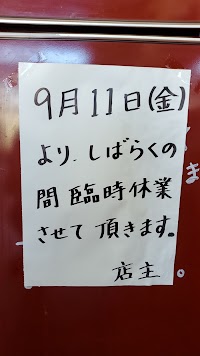 9月11日(金)
より、しばらくの
間臨時休業
させて頂きます。
店主